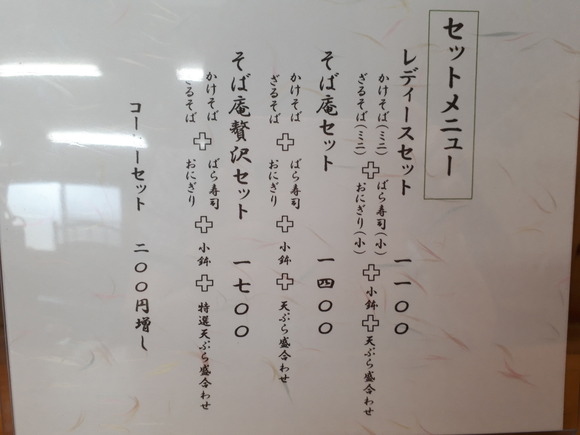 セットメニュー
レディースセット 一一〇〇
かけそば(ミニ) ばら寿司(小)
ざるそば(ミニ) + おにぎり(小) + 小鉢 + 天ぷら盛合わせ
そば庵セット 一四〇〇
かけそば ばら寿司
ざるそば + おにぎり + 小鉢 + 天ぷら盛合わせ
そば庵贅沢セット 一七〇〇
かけそば ばら寿司
ざるそば + おにぎり + 小鉢 + 特選天ぷら盛合わせ
コーヒーセット 二〇〇円増し